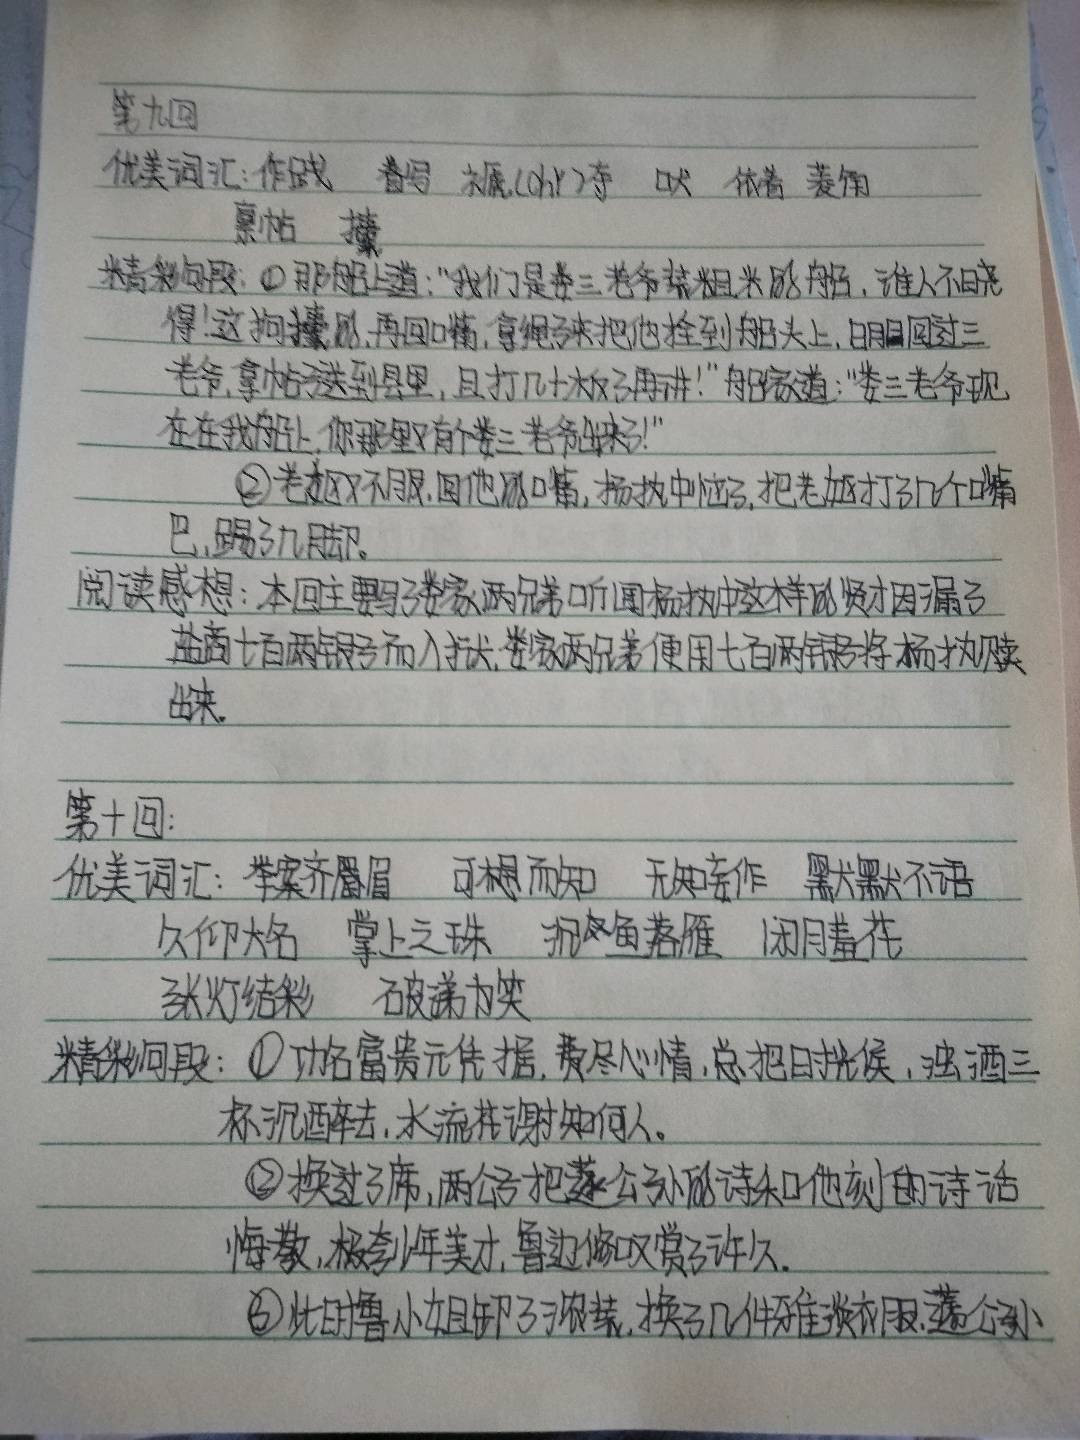 第九回
优美词汇：作践 眷写 褫(chǐ)夺 吠 依着 菱角
禀帖 攮
精彩句段：①那船上道："我们是娄三老爷装租米的船，谁人不晓
得！这狗攮的，再回嘴，拿绳子来把他拴到船头上，明日回过三
老爷，拿帖子送到县里，且打几十板子再讲！"船家道："娄三老爷现
在在我船上，你那里又有个娄三老爷出来了！"
②老妪又不服，回他的嘴，杨执中恼了，把老妪打了几个嘴
巴，踢了几脚。
阅读感想：本回主要写了娄家两兄弟听闻杨执中这样的贤才因漏了
盐商七百两银子而入狱，娄家两兄弟便用七百两银子将杨执赎
出来。
第十回：
优美词汇：举案齐眉 可想而知 无知妄作 默默不语
久仰大名 掌上之珠 沉鱼落雁 闭月羞花
张灯结彩 破涕为笑
精彩句段：①功名富贵无凭据，费尽心情，总把日光侯，浊酒三
杯沉醉去，水流花谢知何人。
②换过了席，两公子把蘧公孙的诗和他刻的诗话
悔教，极夸少年美才，鲁边修叹赏了许久。
③此时鲁小姐卸了浓装，换了几件雅淡衣服，蘧公孙